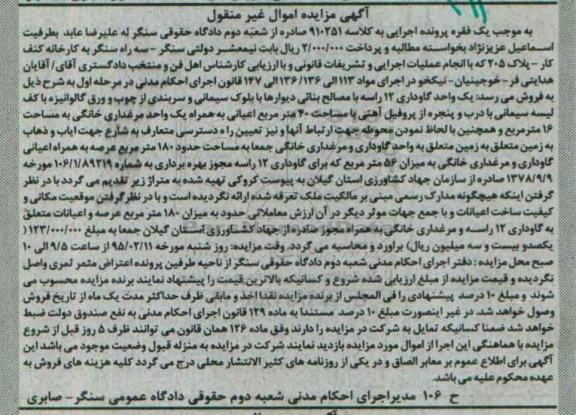 آگهی مزایده اموال غیر منقول
به موجب یک فقره پرونده اجرایی به کلاسه ۹۱۰۲۵۱ صادره از شعبه دوم دادگاه حقوقی سنگر له علیرضا عابد بطرفیت
اسماعیل عزیزنژاد بخواسته مطالبه و پرداخت ۲/۰۰۰/۰۰۰ ریال بابت نیمعشر دولتی سنگر - سه راه سنگر به کارخانه کنف
کار - پلاک ۲۰۵ که با انجام عملیات اجرایی و تشریفات قانونی و با ارزیابی کارشناس اهل فن و منتخب دادگستری آقای/ آقایان
هدایتی فر - خوجینیان- نیکخو در اجرای مواد ۱۱۳ الی ۱۳۶/ ۱۳۶ الی ۱۴۷ قانون اجرای احکام مدنی در مرحله اول به شرح ذیل
به فروش می رسد: یک واحد گاوداری ۱۲ راسه با مصالح بنائی دیوارها با بلوک سیمانی و سربندی از چوب و ورق گالوانیزه با کف
لیسه سیمانی با درب و پنجره از پروفیل آهنی با مساحت ۴۰ متر مربع اعیانی به همراه یک واحد مرغداری خانگی به مساحت
۱۶ مترمربع و همچنین با لحاظ نمودن محوطه جهت ارتباط آنها و نیز تعیین راه دسترسی متعارف به شارع جهت ایاب و ذهاب
به زمین متعلق به زمین متعلق به واحد گاوداری و مرغداری خانگی جمعا به مساحت حدود ۱۸۰ متر مربع عرصه به همراه اعیانی
گاوداری و مرغداری خانگی به میزان ۵۶ متر مربع که برای گاوداری ۱۲ راسه مجوز بهره برداری به شماره ۱۰۶/۱/۸۹۲۱۹ مورخه
۱۳۷۸/۹/۹ صادره از سازمان جهاد کشاورزی استان گیلان به پیوست کروکی تهیه شده به متراژ زیر تقدیم می گردد با در نظر
گرفتن اینکه هیچگونه مدارک رسمی مبنی بر مالکیت ملک تعرفه شده ارائه نگردیده است و با در نظر گرفتن موقعیت مکانی و
کیفیت ساخت اعیانات و با جمع جهات موثر دیگر در آن ارزش معاملاتی حدود به میزان ۱۸۰ متر مربع عرصه و اعیانات متعلق
به گاوداری ۱۲ راسه و مرغداری خانگی به همراه مجوز صادره از جهاد کشاورزی استان گیلان جمعا به مبلغ ۱۲۳/۰۰۰/۰۰۰(
یکصدو بیست و سه میلیون ریال) براورد و محاسبه می گردد. وقت مزایده: روز شنبه مورخه ۹۵/۰۲/۱۱ از ساعت ۹/۵ الی ۱۰
صبح محل مزایده : دفتر اجرای احکام مدنی شعبه دوم دادگاه حقوقی سنگر از ناحیه طرفین پرونده اعتراض مثمر ثمری واصل
نگردیده و قیمت مزایده از مبلغ ارزیابی شده شروع و کسانیکه بالاترین قیمت را پیشنهاد نمایند برنده مزایده محسوب می
شوند و مبلغ ۱۰ درصد پیشنهادی را فی المجلس از برنده مزایده نقدا اخذ و مابقی ظرف حداکثر مدت یک ماه از تاریخ فروش
وصول خواهد شد. در غیر اینصورت مبلغ ۱۰ درصد مستندا به ماده ۱۲۹ قانون اجرای احکام مدنی به نفع صندوق دولت ضبط
خواهد شد ضمنا کسانیکه تمایل به شرکت در مزایده را دارند وفق ماده ۱۲۶ همان قانون می توانند ظرف ۵ روز قبل از شروع
مزایده با هماهنگی این اجرا از اموال مورد مزایده بازدید نمایند شرکت در مزایده به منزله قبول وضعیت موجود می باشد این
آگهی برای اطلاع عموم بر معابر الصاق و در یکی از روزنامه های کثیر الانتشار محلی درج می گردد کلیه هزینه های فروش به
عهده محکوم علیه می باشد.
ح ۱۰۶ مدیراجرای احکام مدنی شعبه دوم حقوقی دادگاه عمومی سنگر- صابری